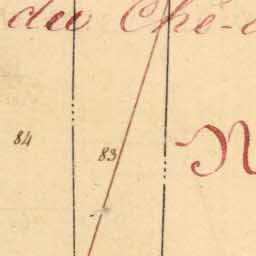 du Che-
84
83
N